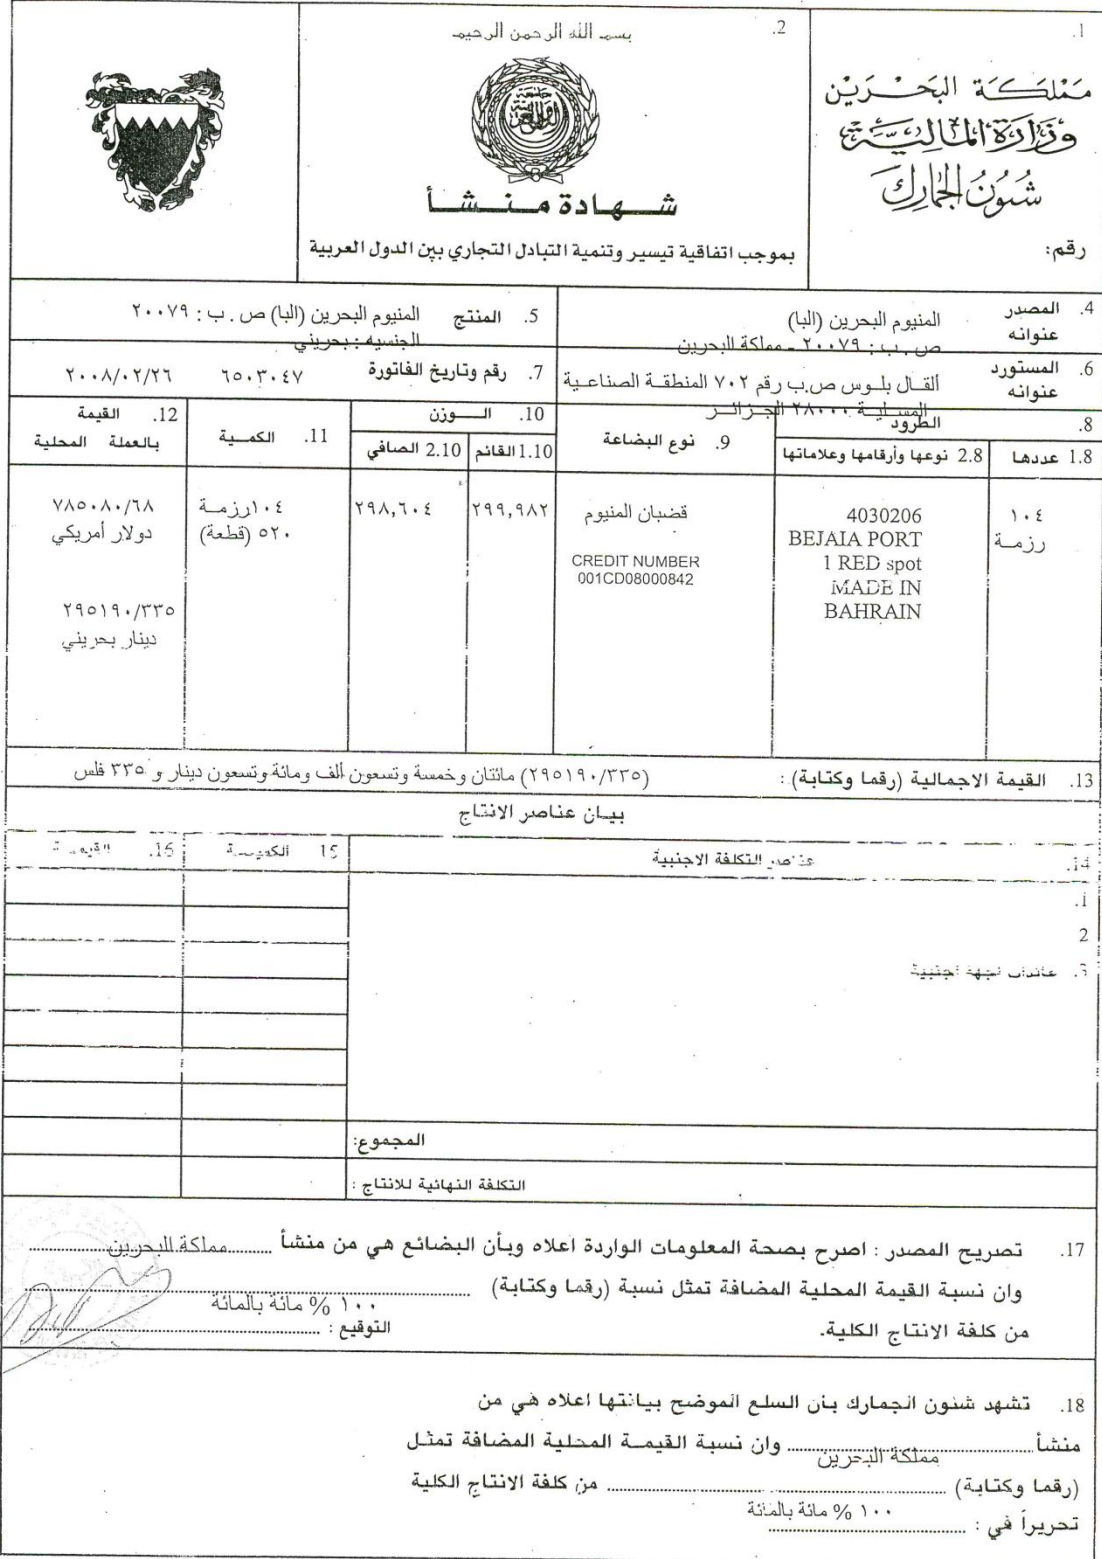 1.
مَمْلَكَة البَحْرَيْن
وَزَارَة المَالِيَّة
شُئونُ الجَمَارِك
رقم:
2.
بسم الله الرحمن الرحيم
شهادة منشأ
بموجب اتفاقية تيسير وتنمية التبادل التجاري بين الدول العربية
4. المصدر عنوانه
المنيوم البحرين (البا)
ص . ب : ٢٠٠٧٩ - مملكة البحرين
5. المنتج المنيوم البحرين (البا) ص . ب : ٢٠٠٧٩
الجنسيه : بحريني
6. المستورد عنوانه
ألقال بلوس ص.ب رقم ٧٠٢ المنطقة الصناعية
المسيلية ٢٨٠٠٠ الجزائر
7. رقم وتاريخ الفاتورة ٦٥٠٣٠٤٧ ٢٠٠٨/٠٢/٢٦
8. الطرود
1.8 عددها
2.8 نوعها وأرقامها وعلاماتها
9. نوع البضاعة
10. الوزن
1.10 القائم
2.10 الصافي
11. الكمية
12. القيمة
بالعملة المحلية
١٠٤
رزمة
4030206
BEJAIA PORT
1 RED spot
MADE IN
BAHRAIN
قضبان المنيوم
CREDIT NUMBER
001CD08000842
٢٩٩,٩٨٢
٢٩٨,٦٠٤
١٠٤رزمة
٥٢٠ (قطعة)
٧٨٥٠٨٠/٦٨
دولار أمريكي
٢٩٥١٩٠/٣٣٥
دينار بحريني
13. القيمة الاجمالية (رقما وكتابة) : (٢٩٥١٩٠/٣٣٥) مائتان وخمسة وتسعون ألف ومائة وتسعون دينار و ٣٣٥ فلس
بيان عناصر الانتاج
14. عناصر التكلفة الاجنبية
15 الكمية
16. القيمة
1.
2
3. عائدات لجهة اجنبية
المجموع:
التكلفة النهائية للانتاج :
17. تصريح المصدر : اصرح بصحة المعلومات الواردة اعلاه وبأن البضائع هي من منشأ .......مملكة البحرين.......
وان نسبة القيمة المحلية المضافة تمثل نسبة (رقما وكتابة) .......
١٠٠ % مائة بالمائة
من كلفة الانتاج الكلية.
التوقيع : .......
18. تشهد شئون الجمارك بأن السلع الموضح بيانتها اعلاه هي من
منشأ ....... وان نسبة القيمة المحلية المضافة تمثل
مملكة البحرين
(رقما وكتابة) ....... من كلفة الانتاج الكلية
١٠٠ % مائة بالمائة
تحريراً في : .......